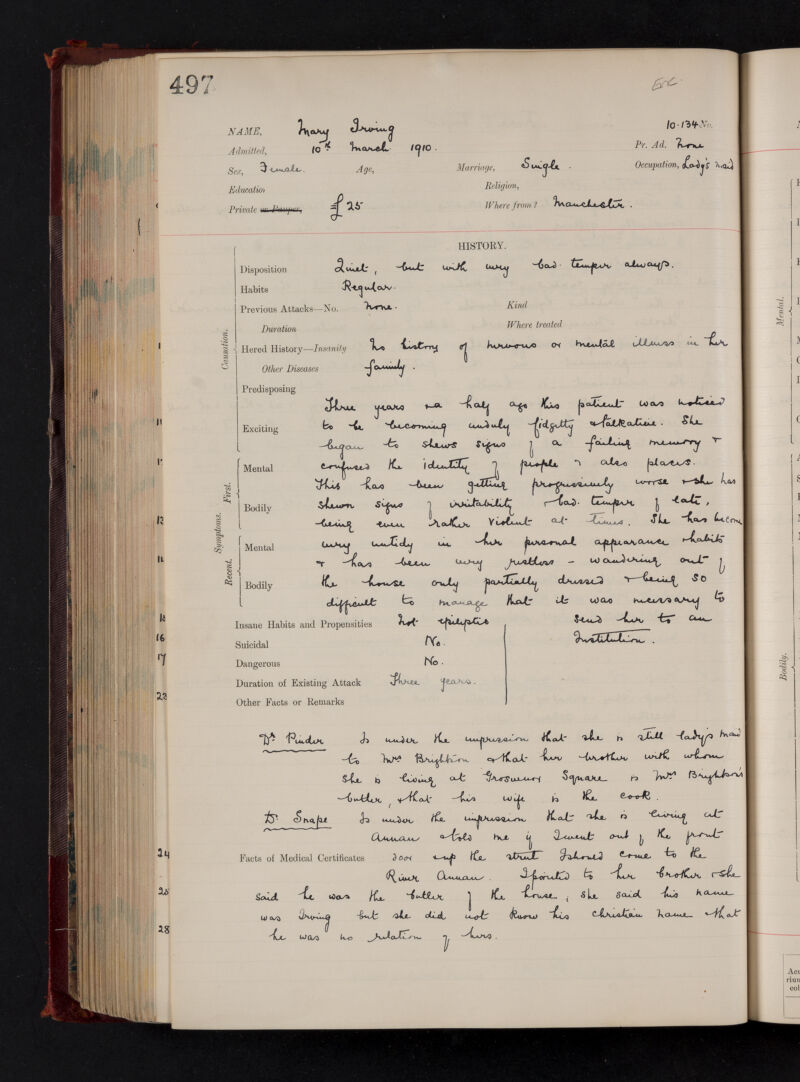 497
NAME, Mary Irving 10-134 No.
Admitted, 10th March 1910. Pr. Ad. None
Sex, Female. Age, Marriage, Single. Occupation, Lady's maid
Education Religion,
Private or Pauper, £25 Where from? Manchester.
HISTORY.
Disposition Quiet, but with very bad temper always.
Habits Regular.
Previous Attacks—No. None. Kind
Duration Where treated
Hered History—Insanity No history of nervous or mental illness in her
Other Diseases family.
Predisposing
Three years & a half ago this patient was noticed
Exciting to be becoming unduly fidgetty & talkative. She
began to shews signs of a failing memory &
Mental confused the identity of people & also places.
This has been getting progressively worse & she has
Bodily shewn signs of irritability & bad temper of late,
being even rather violent at times. She has become
Mental very untidy in her personal appearance & habits
& has been very restless - wandering out of
Bodily the house only partially dressed & being so
difficult to manage that it was necessary to
Insane Habits and Propensities Not epileptic send her to an
Suicidal No. Institution.
Dangerous No.
Duration of Existing Attack Three years.
Other Facts or Remarks
Causation.
Symptoms.
First.
Recent.
Dr. Pinder Is under the impression that she is still lady's maid
to Mrs Brighton & that her brother with whom
she is living at Grosvenor Square is Mrs Brighton's
butler, & that his wife is the cook.
Dr. Snape Is under the impression that she is living at
Annan & told me if I went out of the front
Facts of Medical Certificates door & up the street I should come to the
River Annan. I pointed to her brother & she
said he was the butler of the house, she said his name
was Irving but she did not know his christian name & that
he was no relation of hers.
11
12
16
17
23
24
28
Mental.
Bodily.